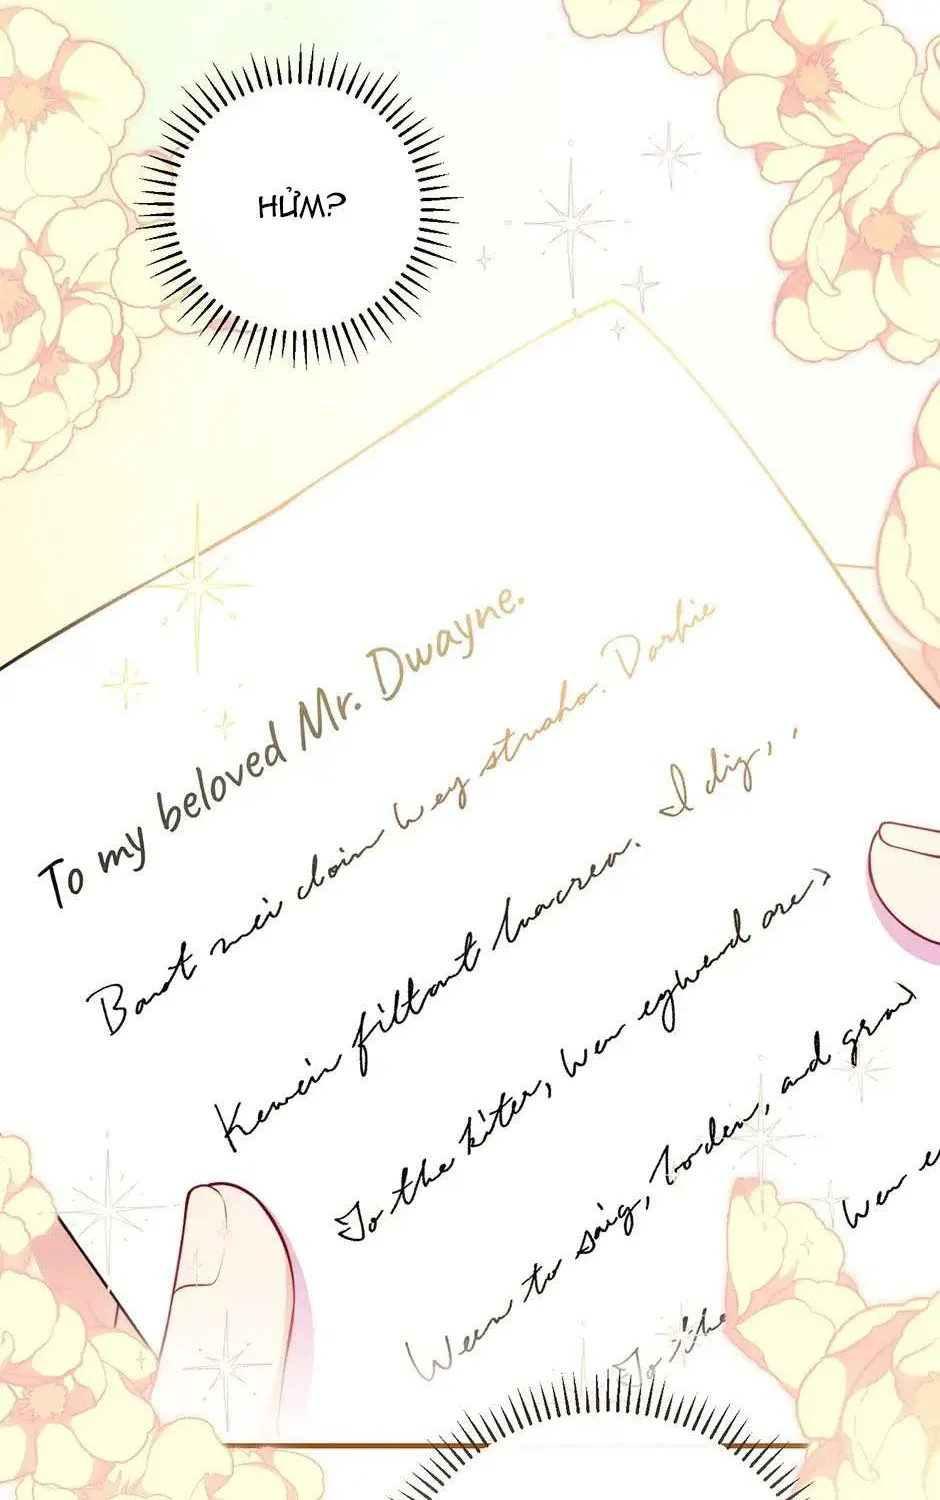 HỬM?
To my beloved Mr. Dwayne.
Baot mei cloin wey struaho. Dorhie
Kemein filtont luacrea. I dig, ,
To the kiter, wen egwend are,
Ween to saig, lorden, and grow
Wen
To the